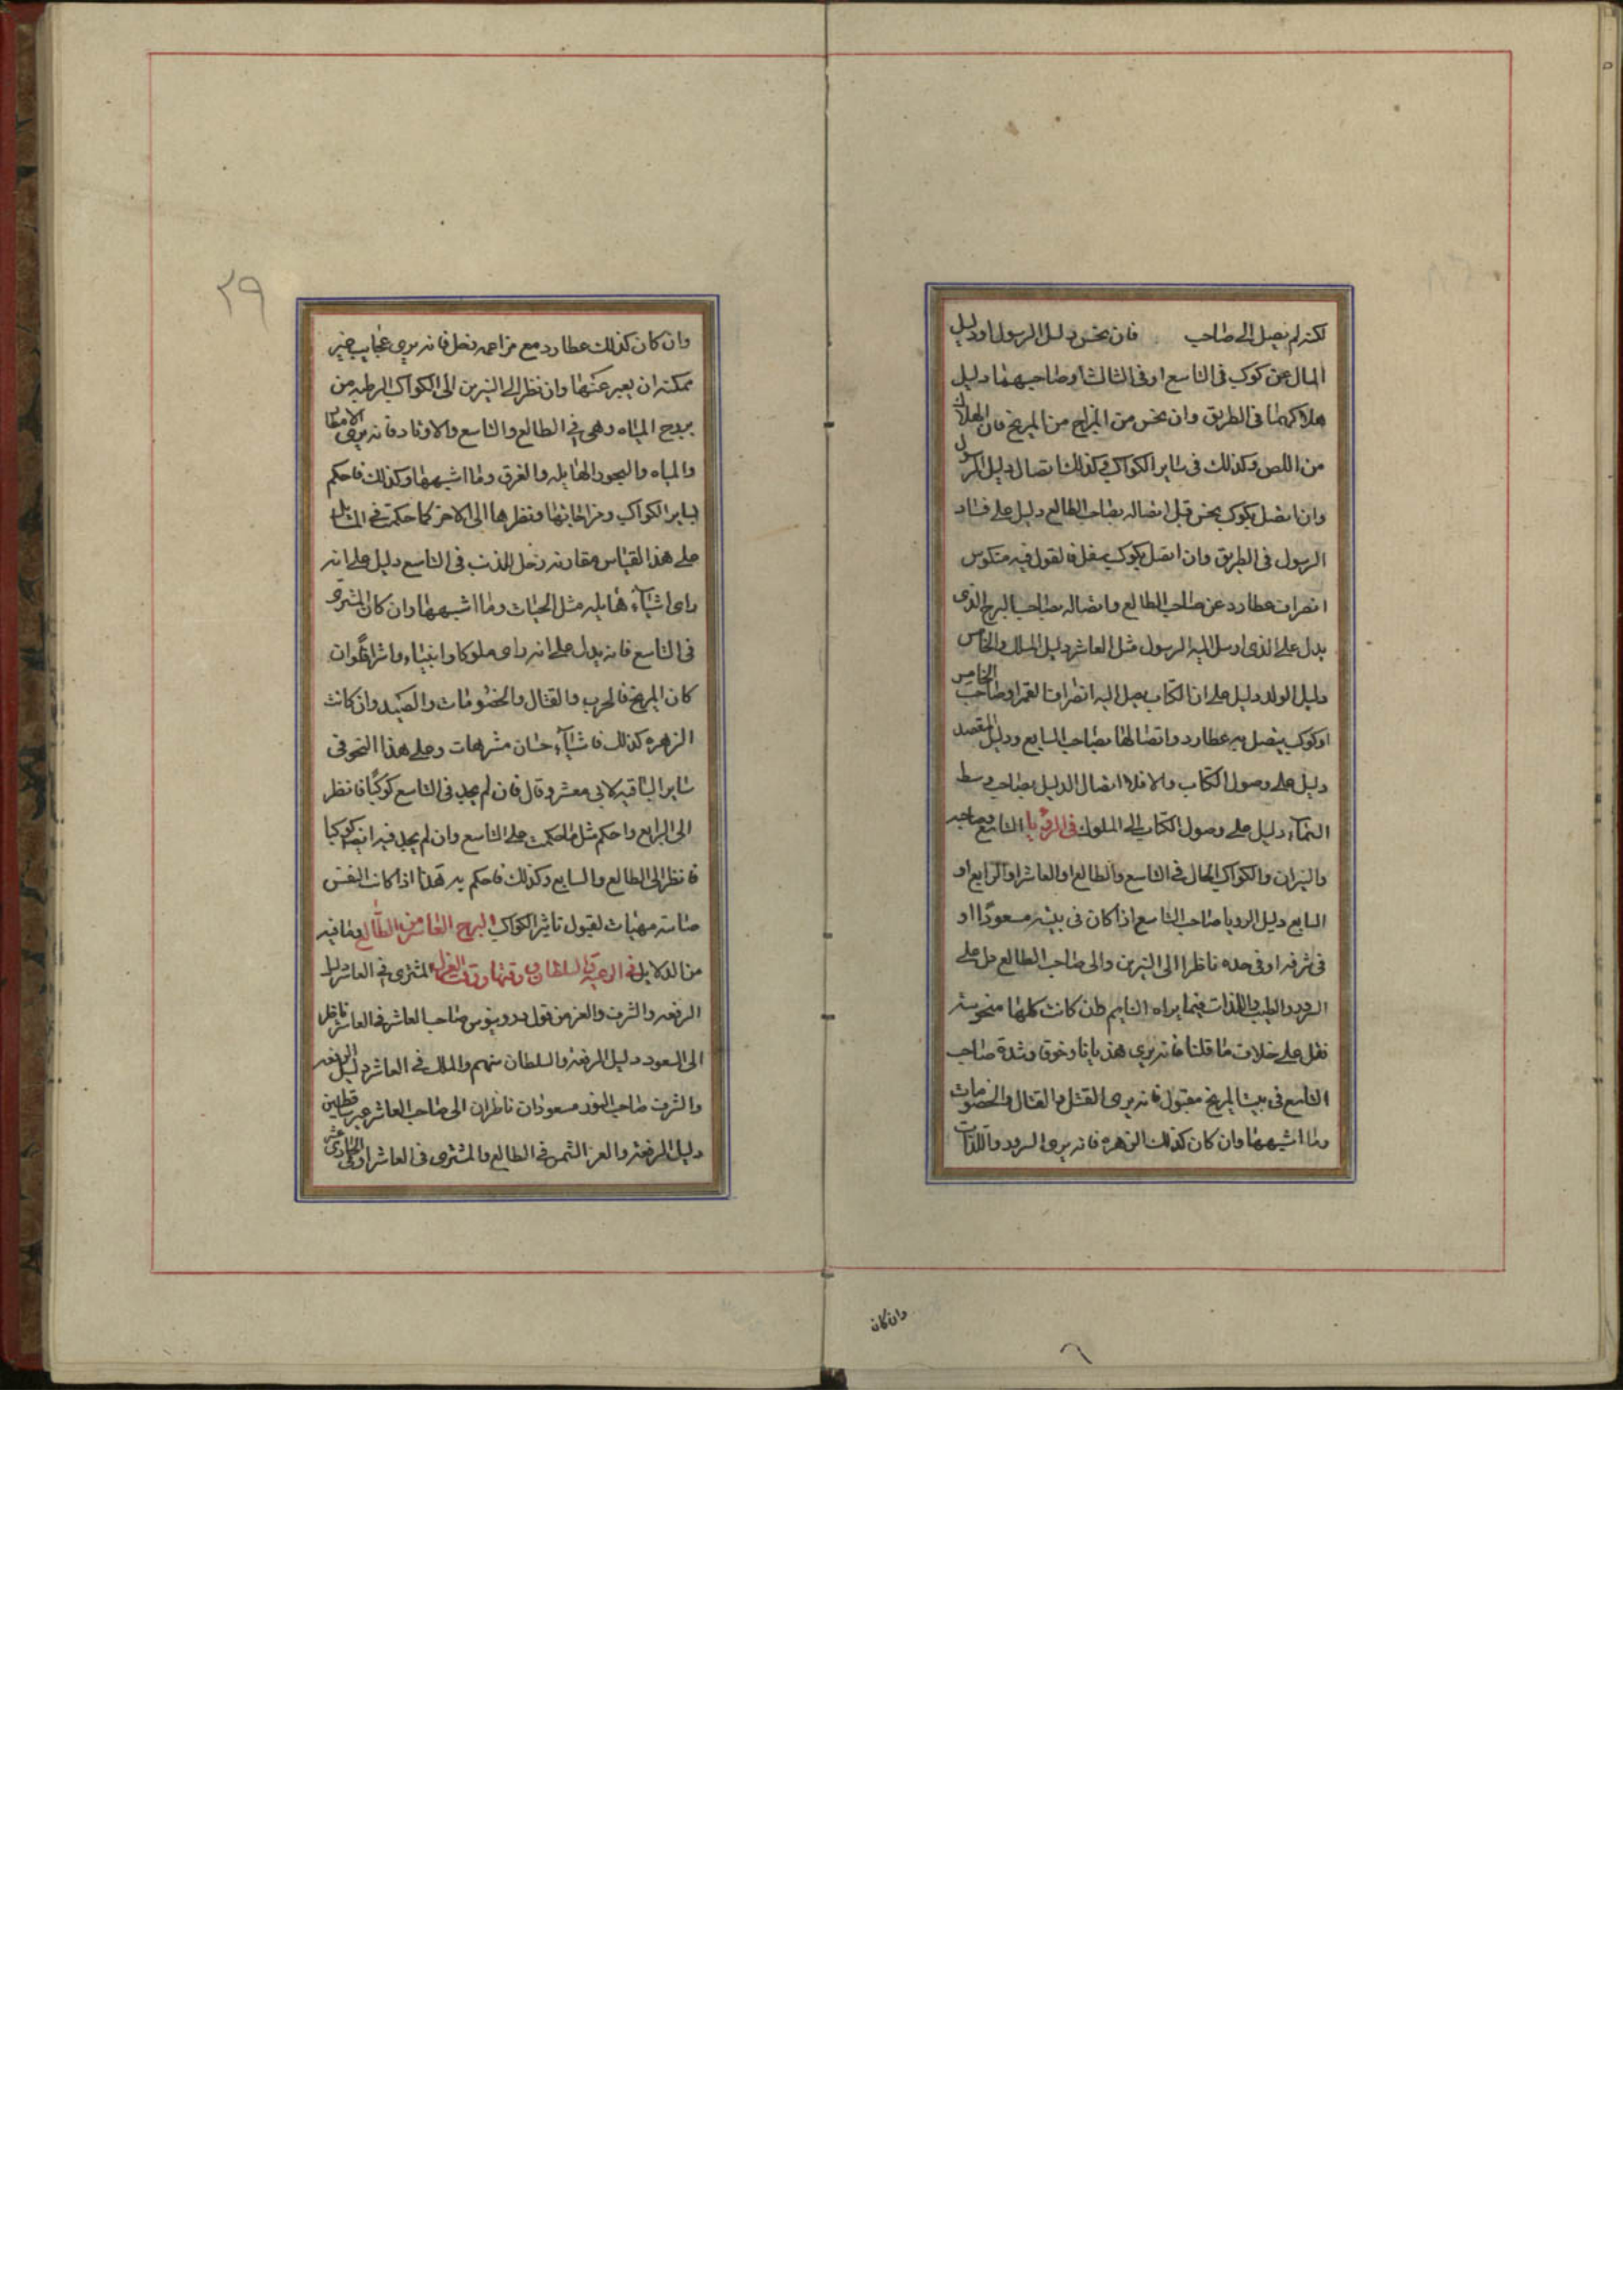 لكنه لم يصل الى صاحب فان نحس دليل الرسول او دليل
المال عن كوكب فى التاسع او فى الثالث او صاحبيهما دليل
هلاكهما فى الطريق وان نحس من المريخ فان الهلاك
من اللص وكذلك فى ساير الكواكب وكذلك اتصال دليل الرسول
وان اتصل بكوكب نحس قبل اتصاله بصاحب الطالع دليل على فساد
الرسول فى الطريق وان اتصل بكوكب سفل فالقول فيه منكوس
انصراف عطارد عن صاحب الطالع واتصاله بصاحب البرج الذى
يدل على الذى ارسل اليه الرسول مثل العاشر دليل الملك والخامس
دليل الولد دليل على ان الكتاب يصل اليه انصراف القمر او صاحب الخامس
او كوكب يتصل به عطارد واتصالها بصاحب السابع ودليل المقصد
دليل على وصول الكتاب والا فلا اتصال الدليل بصاحب وسط
السمآء دليل على وصول الكتاب الى الملوك فى الرؤيا التاسع وصاحبه
والنيران والكواكب الحال فى التاسع والطالع او العاشر او الرابع او
السابع دليل الرويا صاحب التاسع اذا كان فى بيته مسعودًا او
فى شرفه او فى حده ناظرا الى النيرين والى صاحب الطالع دل على
السرور والطيب واللذات فيما يراه النايم فان كانت كلها منحوسة
فقل على خلاف ما قلنا فانه يرى هذيانا وخوفا وشدة صاحب
التاسع فى بيت المريخ مقبول فانه يرى القتل والقتال والخصومات
وما اشبهها وان كان كذلك الزهره فانه يرى السرور واللذات
وان كان
٢٩
وان كان كذلك عطارد مع مزاحمه زحل فانه يرى عجايب غير
ممكنه ان يعبر عنها وان نظر الى النيرين الى الكواكب الرطبه من
بروج المياه وهى فى الطالع والتاسع والاوتاد فانه يرى الامطار
والمياه والبحور الهايله والغرق وما اشبهها وكذلك فاحكم
لساير الكواكب ومزاجاتها ونظرها الى الاخر كما حكمت فى المسايل
على هذا القياس مقارنه زحل للذنب فى التاسع دليل على انه
راى اشيآء هايله مثل الحيات وما اشبهها وان كان المشترى
فى التاسع فانه يدل على انه راى ملوكا وانبياء واشرافا وان
كان المريخ فالحرب والقتال والخصومات والصيد وان كانت
الزهره كذلك فاشيآء حسان مشرهات وعلى هذا النحو فى
ساير الباقيه لابى معشر وقال فان لم يجد فى التاسع كوكبًا فانظر
الى الرابع واحكم مثل ما حكمت على التاسع وان لم يجد فيه ايضا كوكبا
فانظر الى الطالع والسابع وكذلك فاحكم به هذا اذا كانت النفس
صافية مهيات لقبول تاثير الكواكب البرج العاشر من الطالع وما فيه
من الدلايل فى الرعية والسلطان المشترى فى العاشر دليل
الرفعه والشرف والعز من قول دروينوس صاحب العاشر فى العاشر ناظر
الى السعود دليل الرفعه والسلطان سهم والملك فى العاشر دليل الرفعه
والشرف صاحب النور مسعودان ناظران الى صاحب العاشر غير ساقطين
دليل الرفعه والعز الشمس فى الطالع والمشترى فى العاشر او فى الحادى عشر